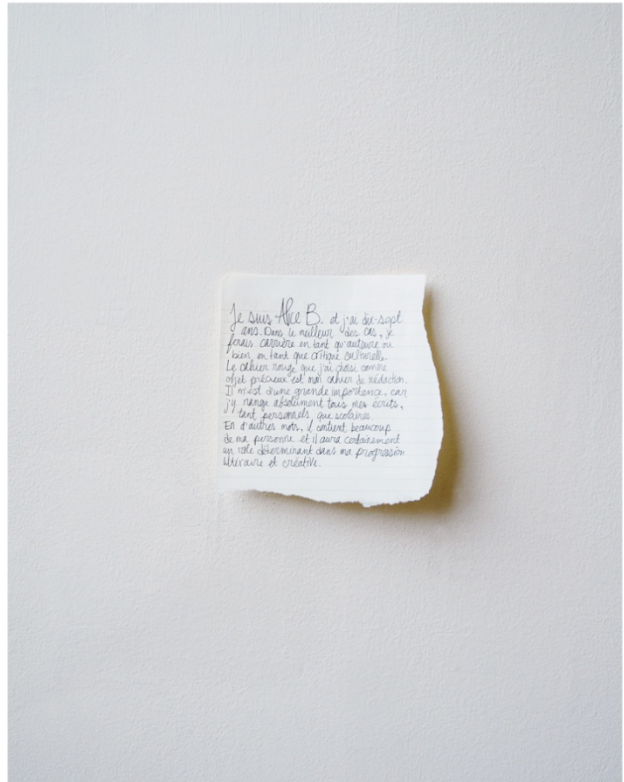 Je suis Alice B. et j'ai dix-sept
ans. Dans le meilleur des cas, je
ferais carrière en tant qu'auteure ou
bien en tant que critique culturelle.
Le cahier rouge que j'ai choisi comme
objet précieux est mon cahier de rédaction.
Il m'est d'une grande importance, car
j'y range absolument tous mes écrits,
tant personnels que scolaires.
En d'autres mots, il contient beaucoup
de ma personne et il aura certainement
un rôle déterminant dans ma progression
littéraire et créative.